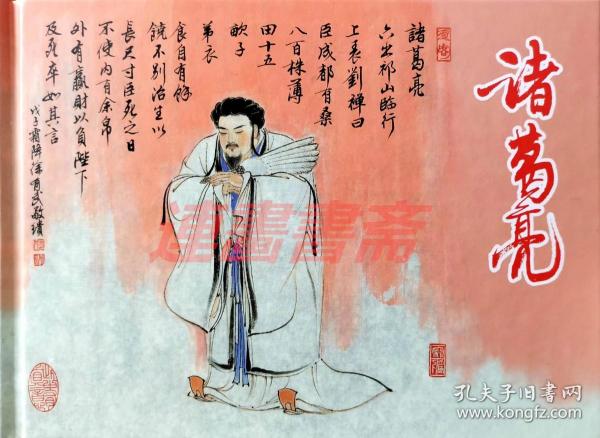 諸葛亮
諸葛亮
六出祁山臨行
上表劉禪曰
臣成都有桑
八百株薄
田十五
畝子
弟衣
食自有餘
饒不別治生以
長尺寸臣死之日
不使內有余帛
外有贏財以負陛下
及死卒如其言
戊子霜降徐有武敬
畫書斋
孔夫子旧書网
www.kongfz.com